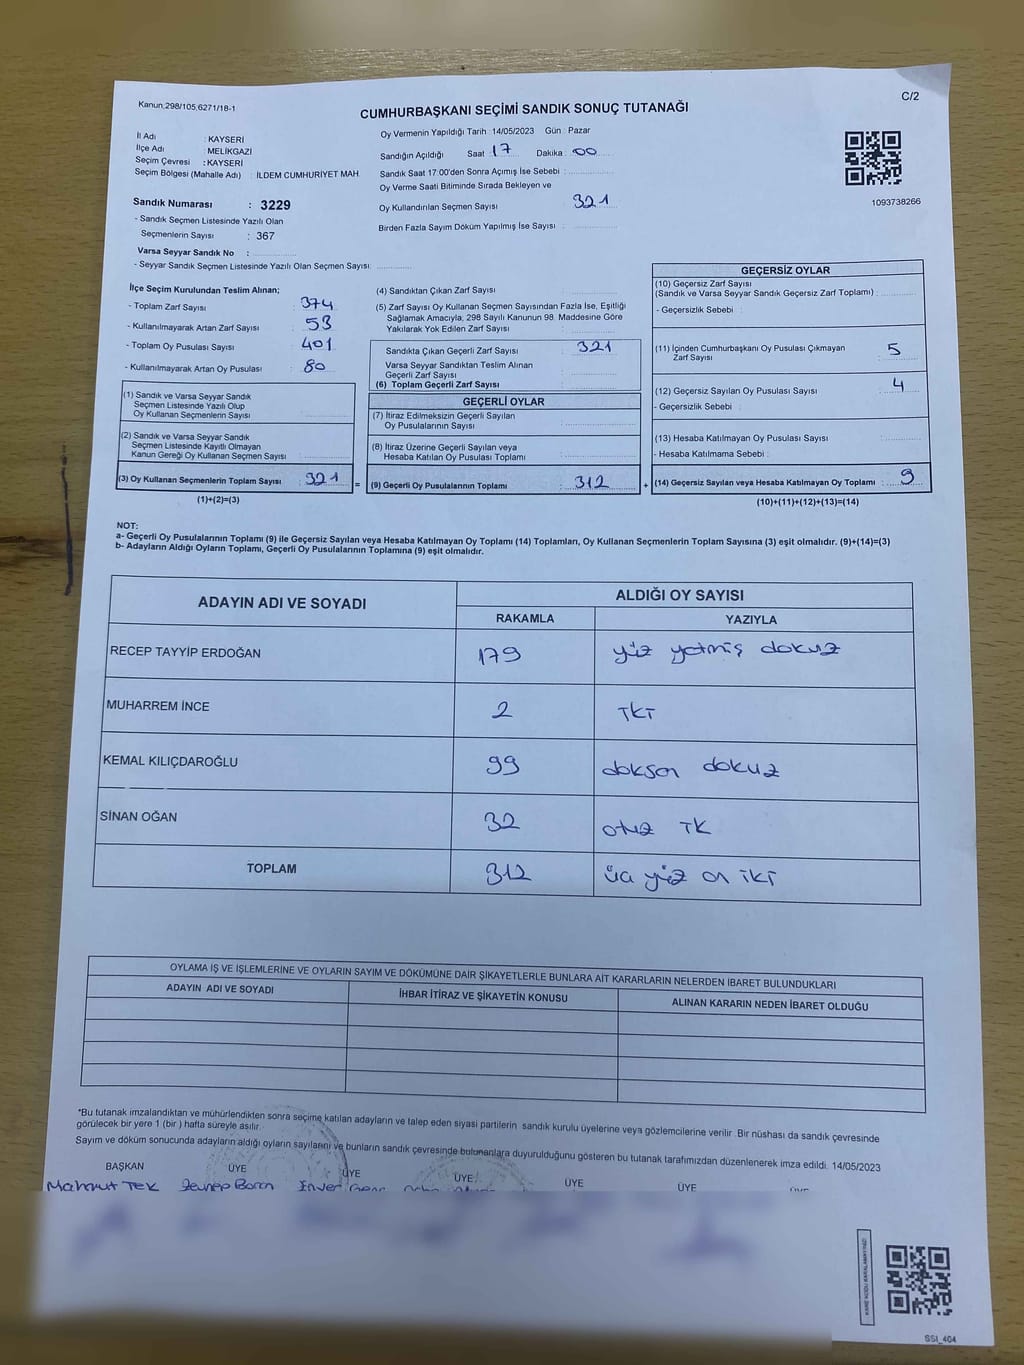 Kanun,298/105,6271/18-1
C/2
CUMHURBAŞKANI SEÇİMİ SANDIK SONUÇ TUTANAĞI
İl Adı : KAYSERİ
İlçe Adı : MELİKGAZİ
Seçim Çevresi : KAYSERİ
Seçim Bölgesi (Mahalle Adı) : İLDEM CUMHURİYET MAH.
Sandık Numarası : 3229
- Sandık Seçmen Listesinde Yazılı Olan
Seçmenlerin Sayısı : 367
Varsa Seyyar Sandık No :
- Seyyar Sandık Seçmen Listesinde Yazılı Olan Seçmen Sayısı:
Oy Vermenin Yapıldığı Tarih : 14/05/2023 Gün : Pazar
Sandığın Açıldığı Saat 17 Dakika 00
Sandık Saat 17:00'den Sonra Açımış İse Sebebi :
Oy Verme Saati Bitiminde Sırada Bekleyen ve
Oy Kullandırılan Seçmen Sayısı 321
Birden Fazla Sayım Döküm Yapılmış İse Sayısı :
1093738266
İlçe Seçim Kurulundan Teslim Alınan;
- Toplam Zarf Sayısı : 374
- Kullanılmayarak Artan Zarf Sayısı : 53
- Toplam Oy Pusulası Sayısı : 401
- Kullanılmayarak Artan Oy Pusulası : 80
(1) Sandık ve Varsa Seyyar Sandık
Seçmen Listesinde Yazılı Olup
Oy Kullanan Seçmenlerin Sayısı
(2) Sandık ve Varsa Seyyar Sandık
Seçmen Listesinde Kayıtlı Olmayan
Kanun Gereği Oy Kullanan Seçmen Sayısı :
(3) Oy Kullanan Seçmenlerin Toplam Sayısı : 321
(1)+(2)=(3)
=
(4) Sandıktan Çıkan Zarf Sayısı :
(5) Zarf Sayısı Oy Kullanan Seçmen Sayısından Fazla İse, Eşitliği
Sağlamak Amacıyla, 298 Sayılı Kanunun 98. Maddesine Göre
Yakılarak Yok Edilen Zarf Sayısı :
Sandıkta Çıkan Geçerli Zarf Sayısı : 321
Varsa Seyyar Sandıktan Teslim Alınan
Geçerli Zarf Sayısı
(6) Toplam Geçerli Zarf Sayısı :
GEÇERLİ OYLAR
(7) İtiraz Edilmeksizin Geçerli Sayılan
Oy Pusulalarının Sayısı :
(8) İtiraz Üzerine Geçerli Sayılan veya
Hesaba Katılan Oy Pusulası Toplamı :
(9) Geçerli Oy Pusulalarının Toplamı : 312
+
GEÇERSİZ OYLAR
(10) Geçersiz Zarf Sayısı
(Sandık ve Varsa Seyyar Sandık Geçersiz Zarf Toplamı) :
- Geçersizlik Sebebi :
(11) İçinden Cumhurbaşkanı Oy Pusulası Çıkmayan
Zarf Sayısı : 5
(12) Geçersiz Sayılan Oy Pusulası Sayısı : 4
- Geçersizlik Sebebi :
(13) Hesaba Katılmayan Oy Pusulası Sayısı :
- Hesaba Katılmama Sebebi :
(14) Geçersiz Sayılan veya Hesaba Katılmayan Oy Toplamı : 9
(10)+(11)+(12)+(13)=(14)
NOT:
a- Geçerli Oy Pusulalarının Toplamı (9) ile Geçersiz Sayılan veya Hesaba Katılmayan Oy Toplamı (14) Toplamları, Oy Kullanan Seçmenlerin Toplam Sayısına (3) eşit olmalıdır. (9)+(14)=(3)
b- Adayların Aldığı Oyların Toplamı, Geçerli Oy Pusulalarının Toplamına (9) eşit olmalıdır.
ADAYIN ADI VE SOYADI ALDIĞI OY SAYISI
RAKAMLA YAZIYLA
RECEP TAYYİP ERDOĞAN 179 yüz yetmiş dokuz
MUHARREM İNCE 2 İKİ
KEMAL KILIÇDAROĞLU 99 doksan dokuz
SİNAN OĞAN 32 otuz İK
TOPLAM 312 üç yüz on iki
OYLAMA İŞ VE İŞLEMLERİNE VE OYLARIN SAYIM VE DÖKÜMÜNE DAİR ŞİKAYETLERLE BUNLARA AİT KARARLARIN NELERDEN İBARET BULUNDUKLARI
ADAYIN ADI VE SOYADI İHBAR İTİRAZ VE ŞİKAYETİN KONUSU ALINAN KARARIN NEDEN İBARET OLDUĞU
*Bu tutanak imzalandıktan ve mühürlendikten sonra seçime katılan adayların ve talep eden siyasi partilerin sandık kurulu üyelerine veya gözlemcilerine verilir. Bir nüshası da sandık çevresinde
görülecek bir yere 1 (bir) hafta süreyle asılır.
Sayım ve döküm sonucunda adayların aldığı oyların sayılarını ve bunların sandık çevresinde bulunanlara duyurulduğunu gösteren bu tutanak tarafımızdan düzenlenerek imza edildi. 14/05/2023
BAŞKAN ÜYE ÜYE ÜYE ÜYE ÜYE
Mahmut TEK Zeynep Baran
SSI_404